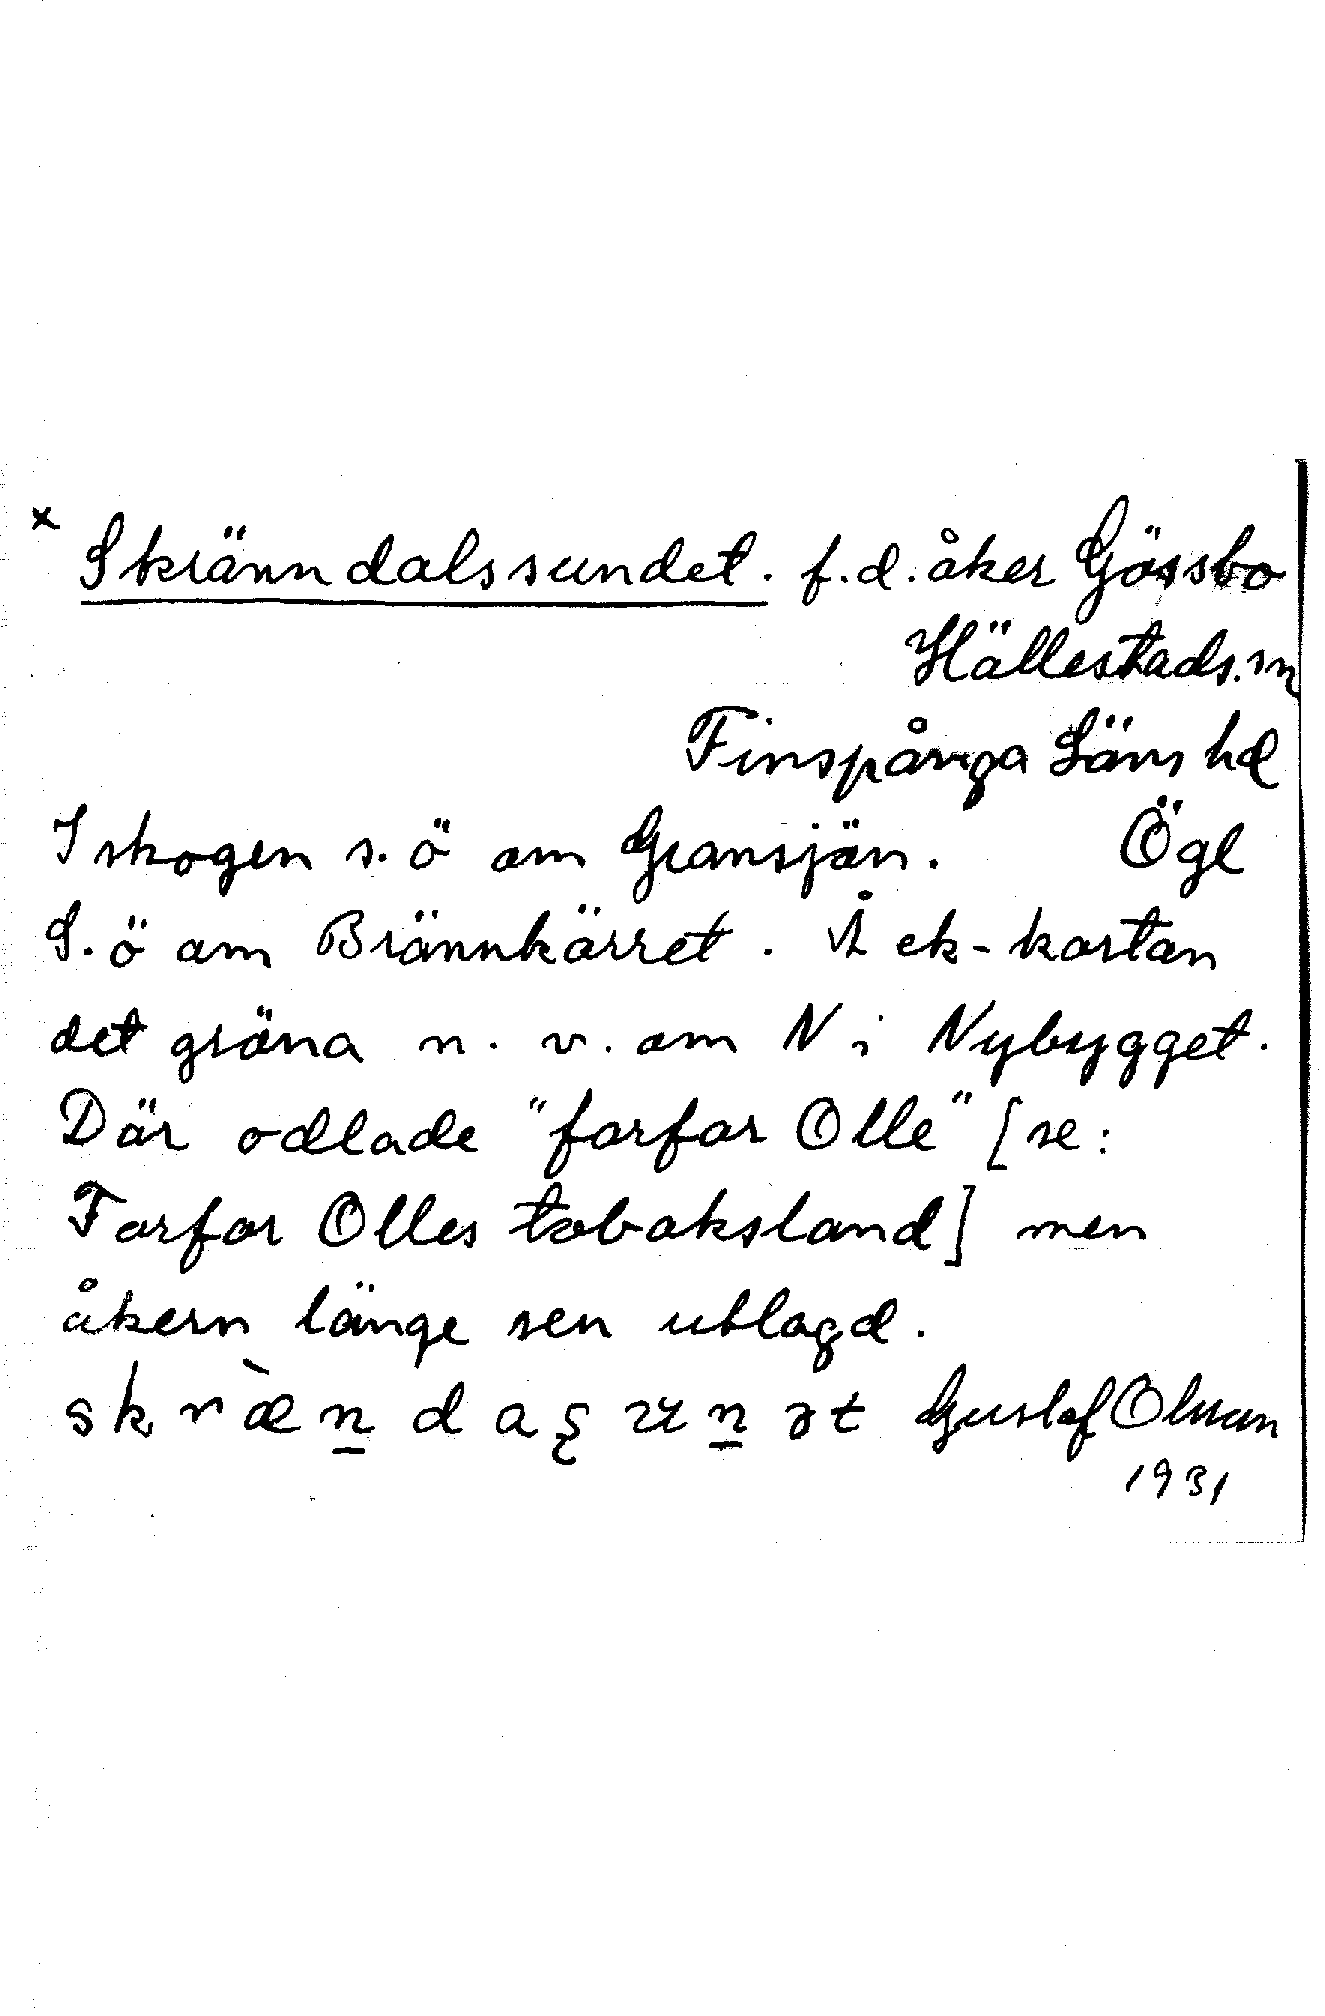 x Skränndalssundet. f.d. åker Gössbo
Hällestads. sn
Finspånga Läns hd
I skogen s. ö om Gransjön. Ögl
S. ö om Brännkärret. Å ek-kartan
det gröna n. v. om N i Nybygget.
Där odlade "farfar Olle" [se:
Farfar Olles tobaksland] men
åkern länge sen utlagd.
skræ̀n̲daʂun̲ət Gustaf Olsson
1931